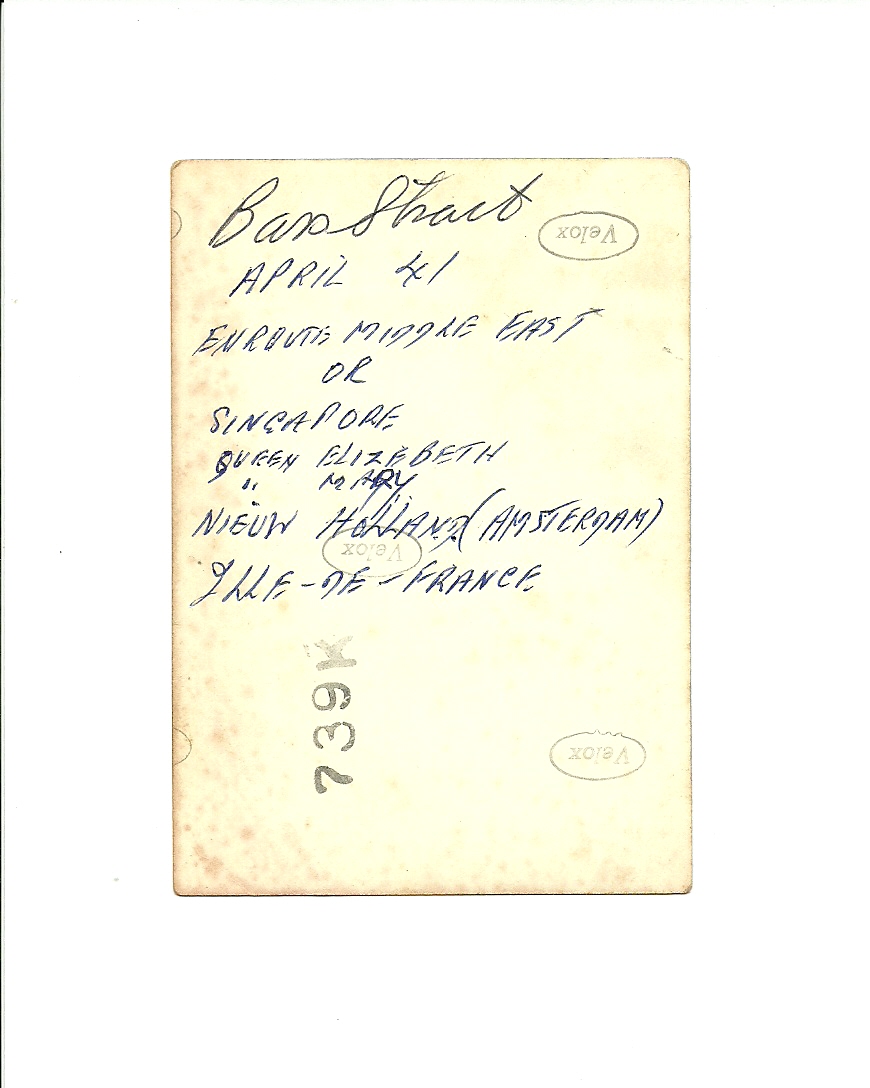 Bass Strait
Velox
APRIL 41
ENROUTE MIDDLE EAST
OR
SINGAPORE
QUEEN ELIZEBETH
" MARY
NIEUW HOLLAND (AMSTERDAM)
Velox
ILLE-DE-FRANCE
739K
Velox